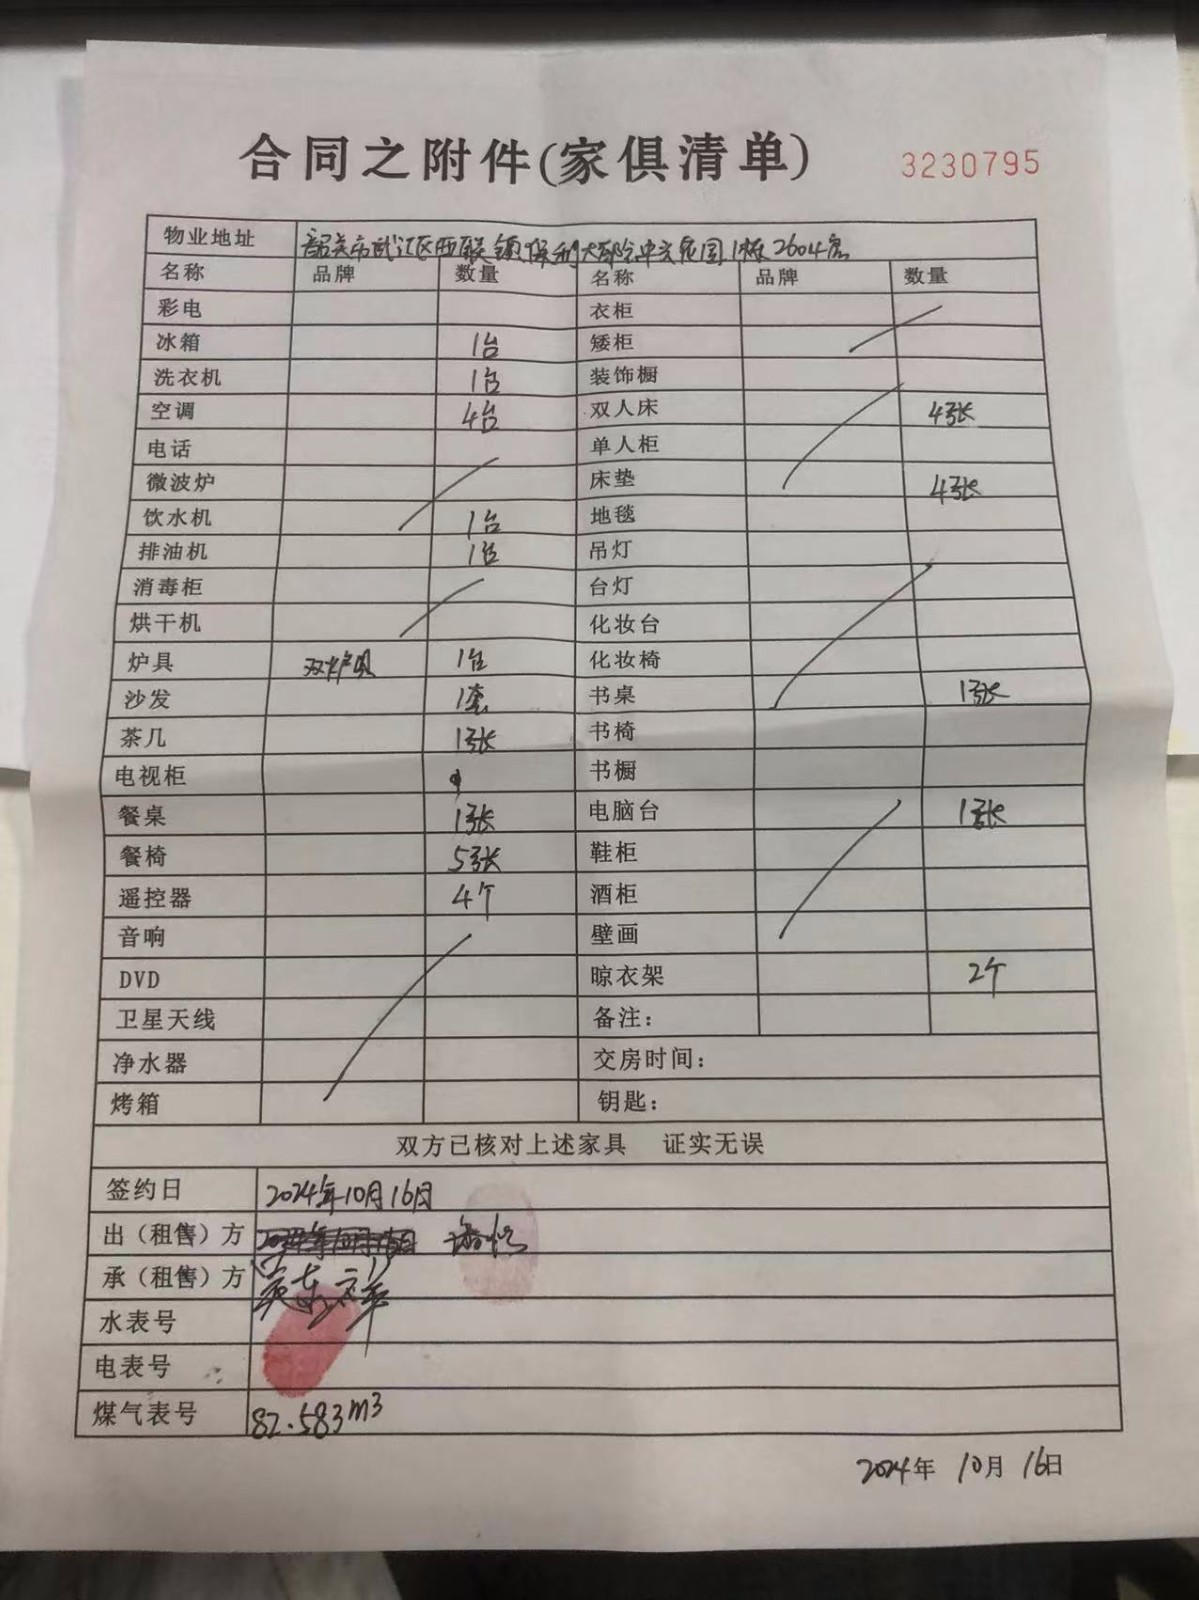 合同之附件(家俱清单) 3230795
物业地址 韶关市武江区西联镇保利大都会中央花园1栋2604房
名称 品牌 数量 名称 品牌 数量
彩电 衣柜
冰箱 1台 矮柜
洗衣机 1台 装饰橱
空调 4台 双人床 4张
电话 单人柜
微波炉 床垫 4张
饮水机 1台 地毯
排油机 1台 吊灯
消毒柜 台灯
烘干机 化妆台
炉具 双炉具 1台 化妆椅
沙发 1套 书桌 1张
茶几 1张 书椅
电视柜 书橱
餐桌 1张 电脑台 1张
餐椅 5张 鞋柜
遥控器 4个 酒柜
音响 壁画
DVD 晾衣架 2个
卫星天线 备注：
净水器 交房时间：
烤箱 钥匙：
双方已核对上述家具 证实无误
签约日 2024年10月16日
出（租售）方
承（租售）方
水表号
电表号
煤气表号 82.583m³
2024年 10月 16日